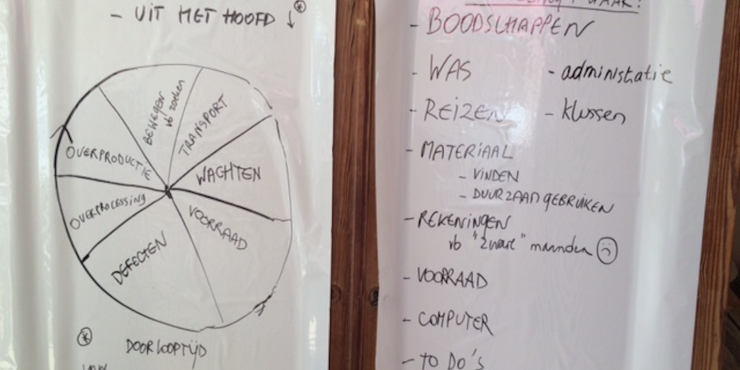 - UIT HET HOOFD
BEWEGEN
vb zoeken
TRANSPORT
OVERPRODUCTIE
WACHTEN
OVERPROCESSING
VOORRAAD
DEFECTEN
DOORLOOPTIJD
WAAR?
- BOODSCHAPPEN
- WAS - administratie
- REIZEN - klussen
- MATERIAAL
- VINDEN
- DUURZAAM GEBRUIKEN
- REKENINGEN
vb "zware" maanden
- VOORRAAD
- COMPUTER
- TO DO'S